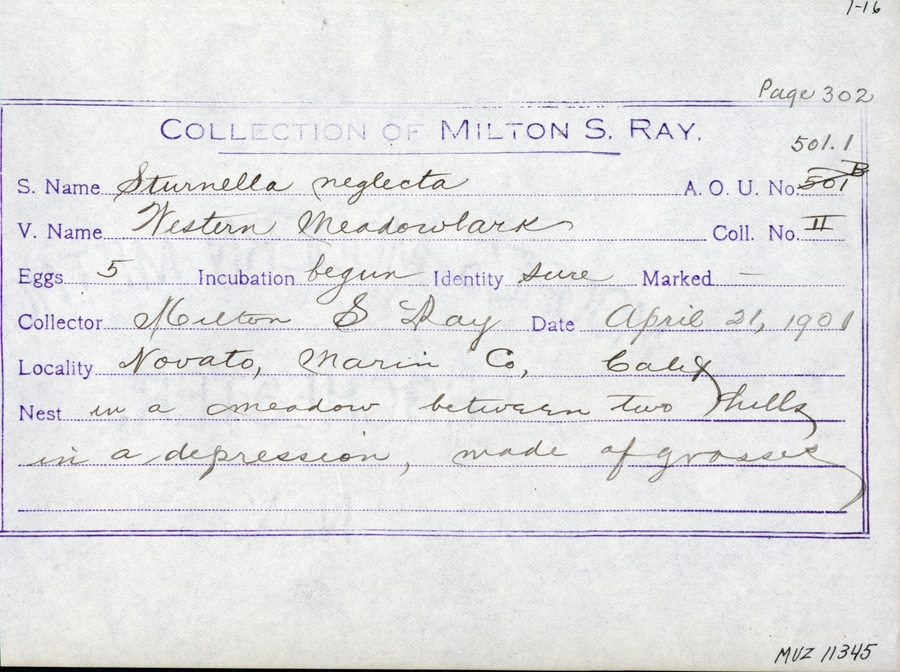 1-16
Page 302
COLLECTION OF MILTON S. RAY.
501.1
S. Name Sturnella neglecta A. O. U. No. 501 B
V. Name Western Meadowlark Coll. No. II
Eggs 5 Incubation begun Identity sure Marked —
Collector Milton S Ray Date April 21, 1901
Locality Novato, Marin Co, Calif
Nest in a meadow between two hills
in a depression, made of grasses
MVZ 11345